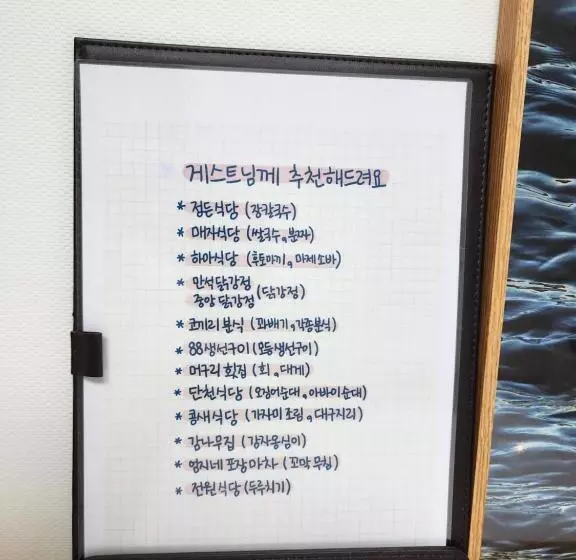 게스트님께 추천해드려요
* 정든식당 (장칼국수)
* 매자식당 (쌀국수, 분짜)
* 하아식당 (후토마끼, 마제소바)
* 만석닭강정
중앙닭강정 (닭강정)
* 코끼리분식 (꽈배기, 각종분식)
* 88생선구이 (모둠생선구이)
* 머구리횟집 (회, 대게)
* 단천식당 (오징어순대, 아바이순대)
* 콩새식당 (가자미조림, 대구지리)
* 감나무집 (감자옹심이)
* 엄지네포장마차 (꼬막무침)
* 전원식당 (두루치기)